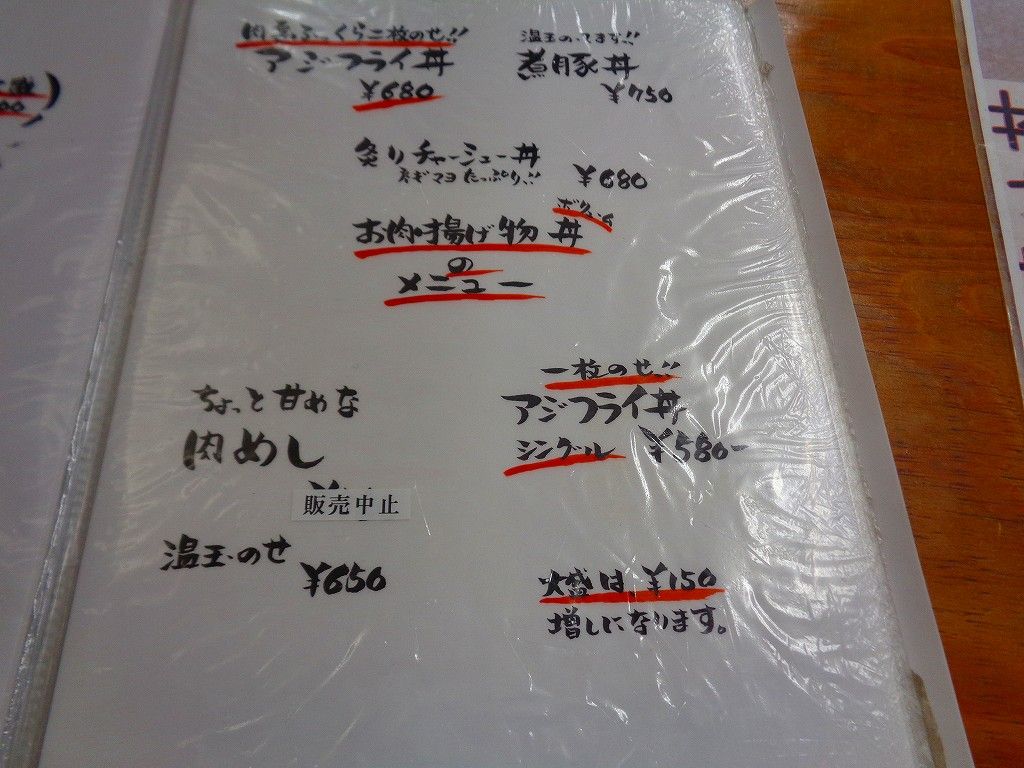 肉厚ふっくら二枚のせ!!
アジフライ丼
¥680
温玉のってます!!
煮豚丼
¥750
炙りチャーシュー丼
ネギマヨたっぷり!!
¥680
ボリューム
お肉・揚げ物 丼
の
メニュー
ちょっと甘めな
肉めし
販売中止
温玉のせ
¥650
一枚のせ!!
アジフライ丼
シングル ¥580-
大盛は ¥150
増しになります。